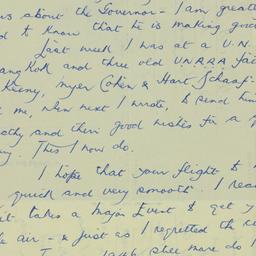 us about the Governor - I am greatl
d to know that he is making good
Last week I was at a U.N.
angkok and three old UNRRA fai
Keeny, Myer Cohen & Hart Schaaf -
me, when next I wrote, to send him
athy and their good wishes for a
This I now do.
I hope that your flight to
quick and very smooth. I rea
takes a Major Event to get y
e air - & just as I regretted the
1946 shee mare do I